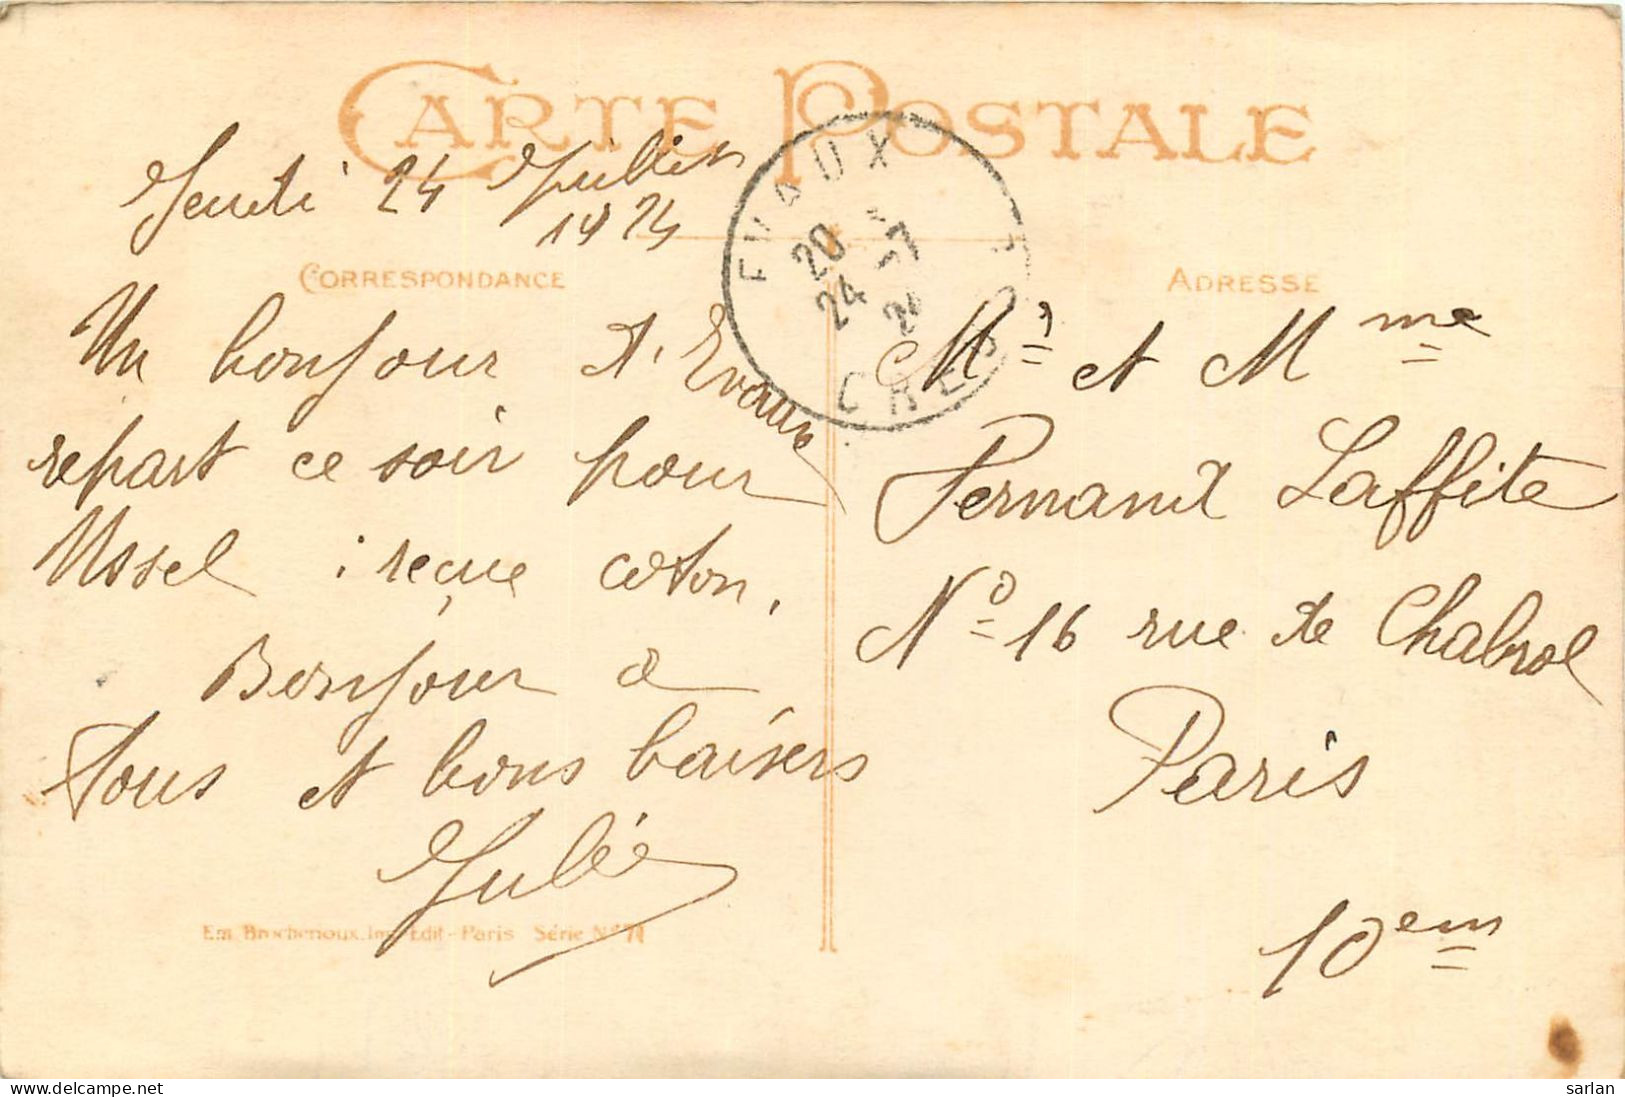 CARTE POSTALE
Jeudi 24 Juillet
1924
CORRESPONDANCE
ADRESSE
EVAUX
20
24 -7
CREUSE
Un bonjour d'Evaux
repart ce soir pour
Ussel ; reçue coton.
Bonjour a
tous et bons baisers
Julée
Em. Brocherioux. Imp. Edit - Paris Série N° 71
Mr et Mme
Fernand Laffite
N° 16 rue de Chabrol
Paris
10em
sarlan